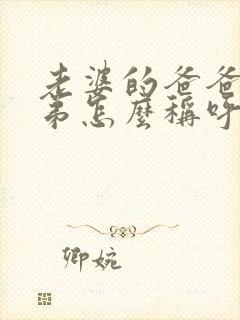 老婆的爸爸
弟怎麼稱呼
卿婉